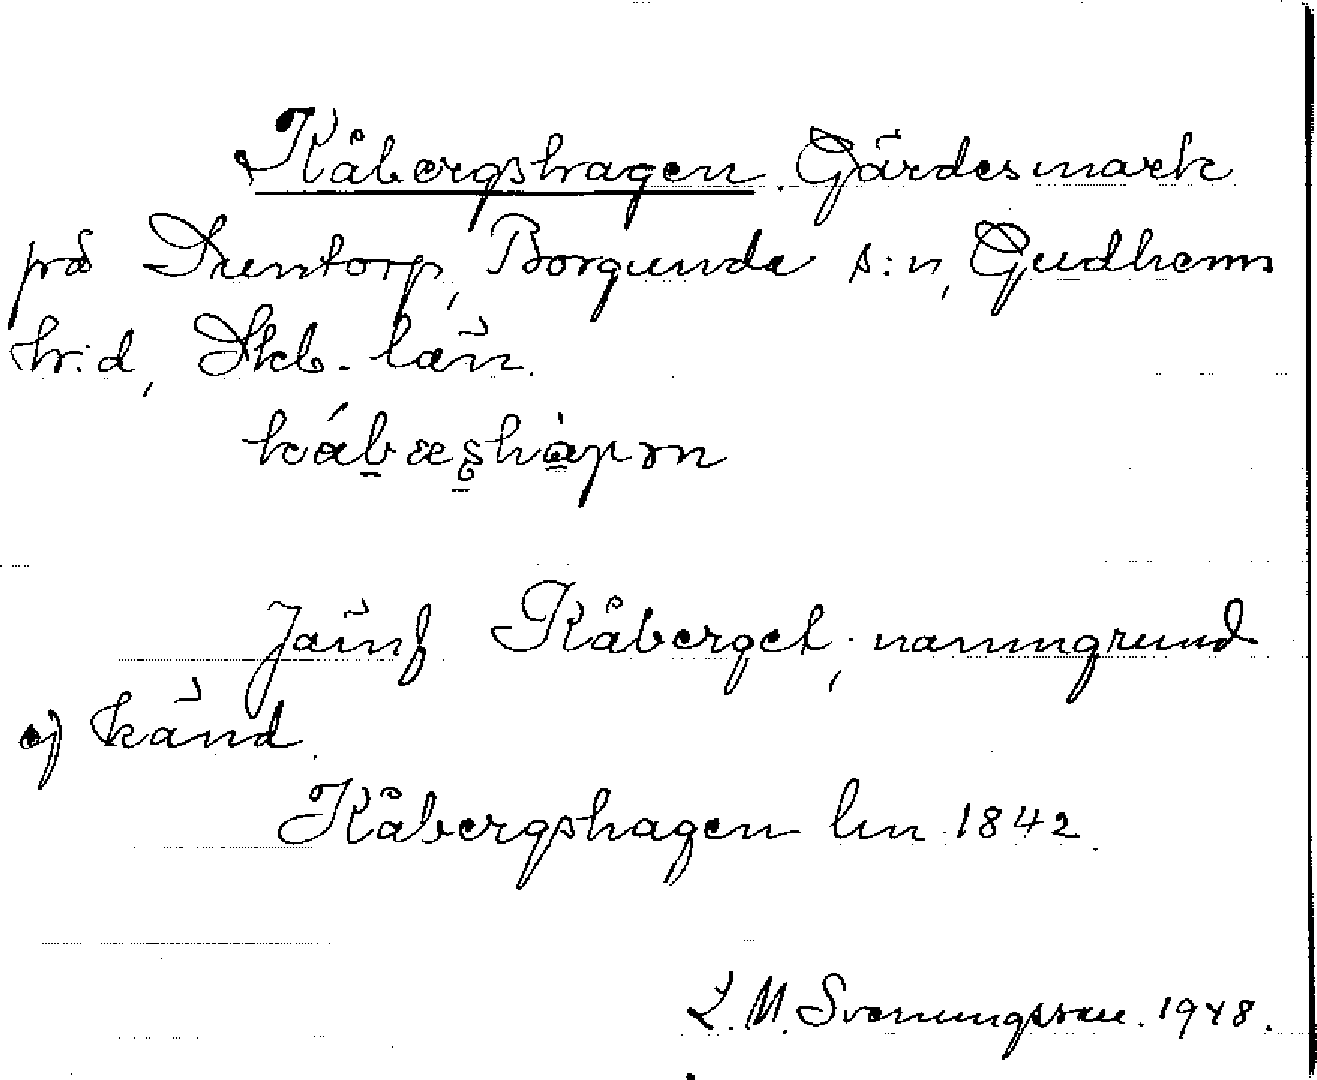 Kåbergshagen. Gärdesmark
på Stentorp, Borgunda s:n, Gudhems
hr:d, Skb. län.
Jämf Kåberget, namngrund
ej känd.
Kåbergshagen lm 1842.
L. M. Svenungsson. 1948.